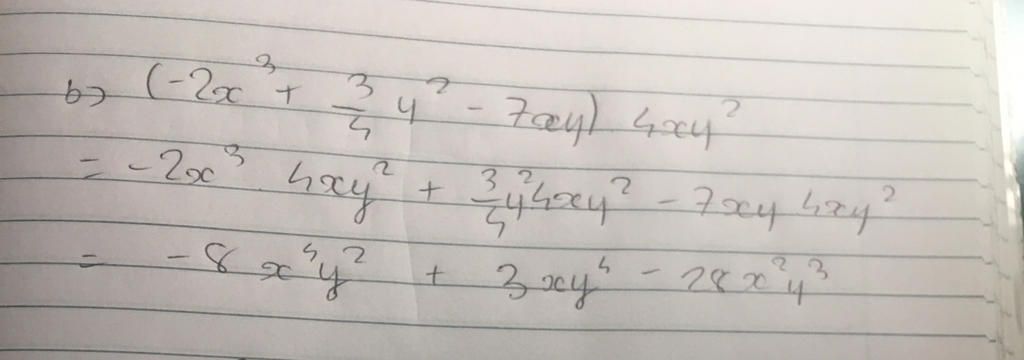 b) (-2x³ + 3/4 y² - 7xy) 4xy²
= -2x³ . 4xy² + 3/4 y² 4xy² - 7xy 4xy²
= -8x⁴y² + 3xy⁴ - 28x²y³